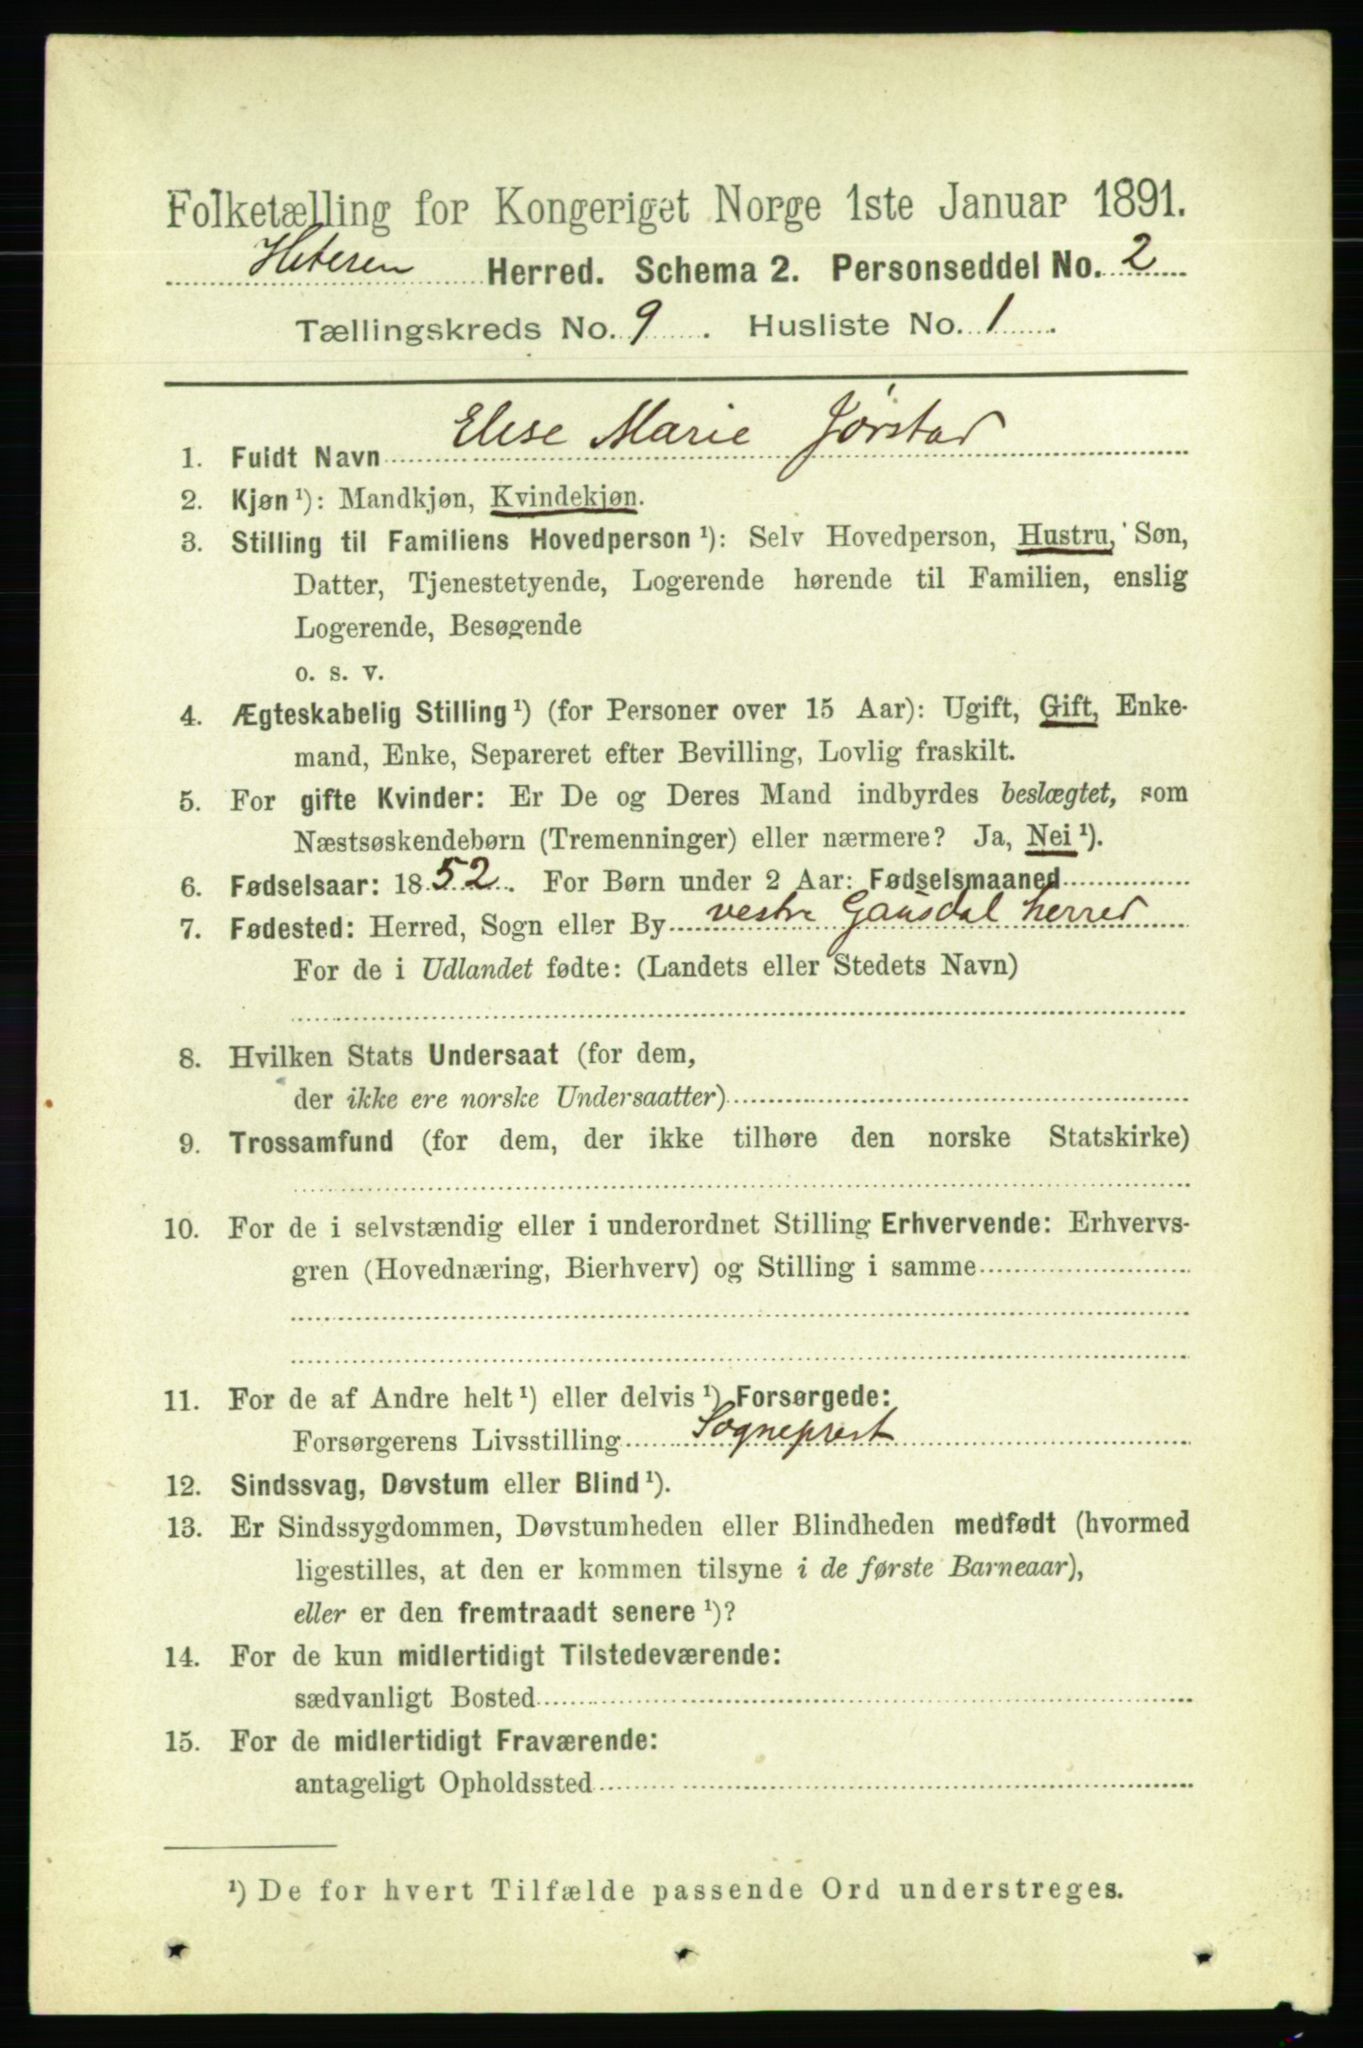 Folketælling for Kongeriget Norge 1ste Januar 1891.
Hiteren Herred. Schema 2. Personseddel No. 2
Tællingskreds No. 9. Husliste No. 1.
1. Fuldt Navn Elise Marie Jørstad
2. Kjøn ¹): Mandkjøn, Kvindekjøn.
3. Stilling til Familiens Hovedperson ¹): Selv Hovedperson, Hustru, Søn,
Datter, Tjenestetyende, Logerende hørende til Familien, enslig
Logerende, Besøgende
o. s. v.
4. Ægteskabelig Stilling ¹) (for Personer over 15 Aar): Ugift, Gift, Enke-
mand, Enke, Separeret efter Bevilling, Lovlig fraskilt.
5. For gifte Kvinder: Er De og Deres Mand indbyrdes beslægtet, som
Næstsøskendebørn (Tremenninger) eller nærmere? Ja, Nei ¹).
6. Fødselsaar: 1852. For Børn under 2 Aar: Fødselsmaaned
7. Fødested: Herred, Sogn eller By vestre Gausdal herred
For de i Udlandet fødte: (Landets eller Stedets Navn)
8. Hvilken Stats Undersaat (for dem,
der ikke ere norske Undersaatter)
9. Trossamfund (for dem, der ikke tilhøre den norske Statskirke)
10. For de i selvstændig eller i underordnet Stilling Erhvervende: Erhvervs-
gren (Hovednæring, Bierhverv) og Stilling i samme
11. For de af Andre helt ¹) eller delvis ¹) Forsørgede:
Forsørgerens Livsstilling Sogneprest
12. Sindssvag, Døvstum eller Blind ¹).
13. Er Sindssygdommen, Døvstumheden eller Blindheden medfødt (hvormed
ligestilles, at den er kommen tilsyne i de første Barneaar),
eller er den fremtraadt senere ¹)?
14. For de kun midlertidigt Tilstedeværende:
sædvanligt Bosted
15. For de midlertidigt Fraværende:
antageligt Opholdssted
¹) De for hvert Tilfælde passende Ord understreges.